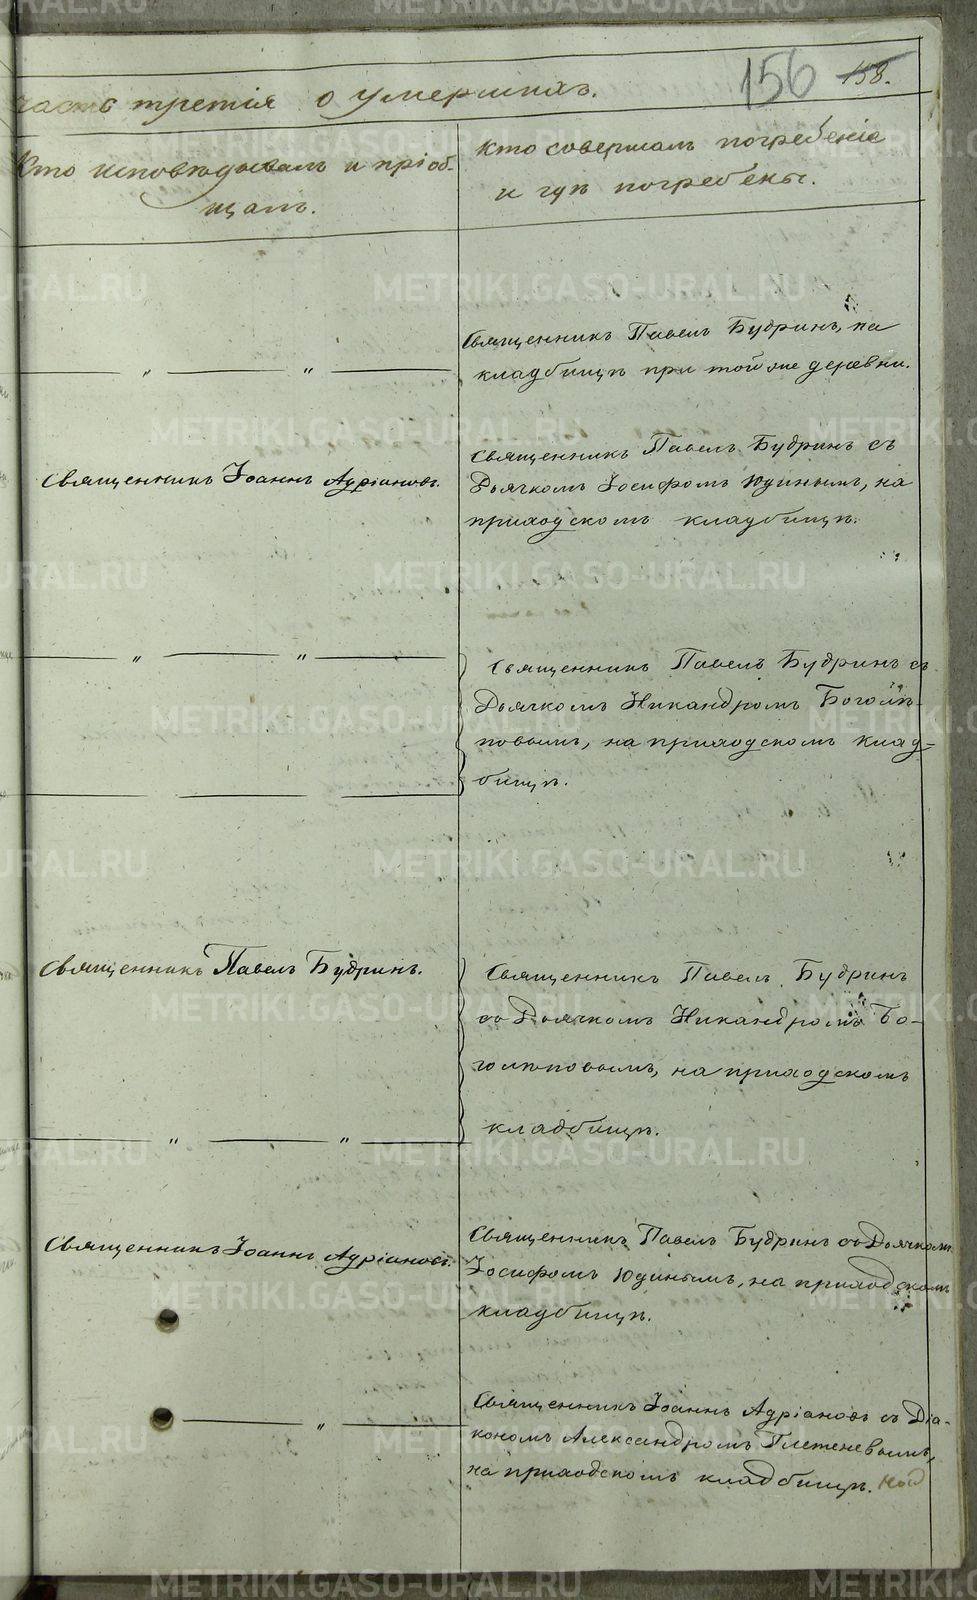 156 158.
часть третія о умершихъ.
Кто исповѣдывалъ и пріоб-
щалъ.
Кто совершалъ погребеніе
и гдѣ погребены.
Священникъ Павелъ Будринъ, на
кладбищѣ при той же деревни.
Священникъ Іоаннъ Адріановъ.
Священникъ Павелъ Будринъ съ
Дьячкомъ Іосифомъ Юдинымъ, на
приходскомъ кладбищѣ.
Священникъ Павелъ Будринъ съ
Дьячкомъ Никандромъ Боголѣ-
повымъ, на приходскомъ клад-
бищѣ.
Священникъ Павелъ Будринъ.
Священникъ Павелъ Будринъ
съ Дьячкомъ Никандромъ Бо-
голѣповымъ, на приходскомъ
кладбищѣ.
Священникъ Іоаннъ Адріановъ.
Священникъ Павелъ Будринъ съ Дьячкомъ
Іосифомъ Юдинымъ, на приходскомъ
кладбищѣ.
Священникъ Іоаннъ Адріановъ съ Діа-
кономъ Александромъ Плетеневымъ,
на приходскомъ кладбищѣ.
METRIKI.GASO-URAL.RU